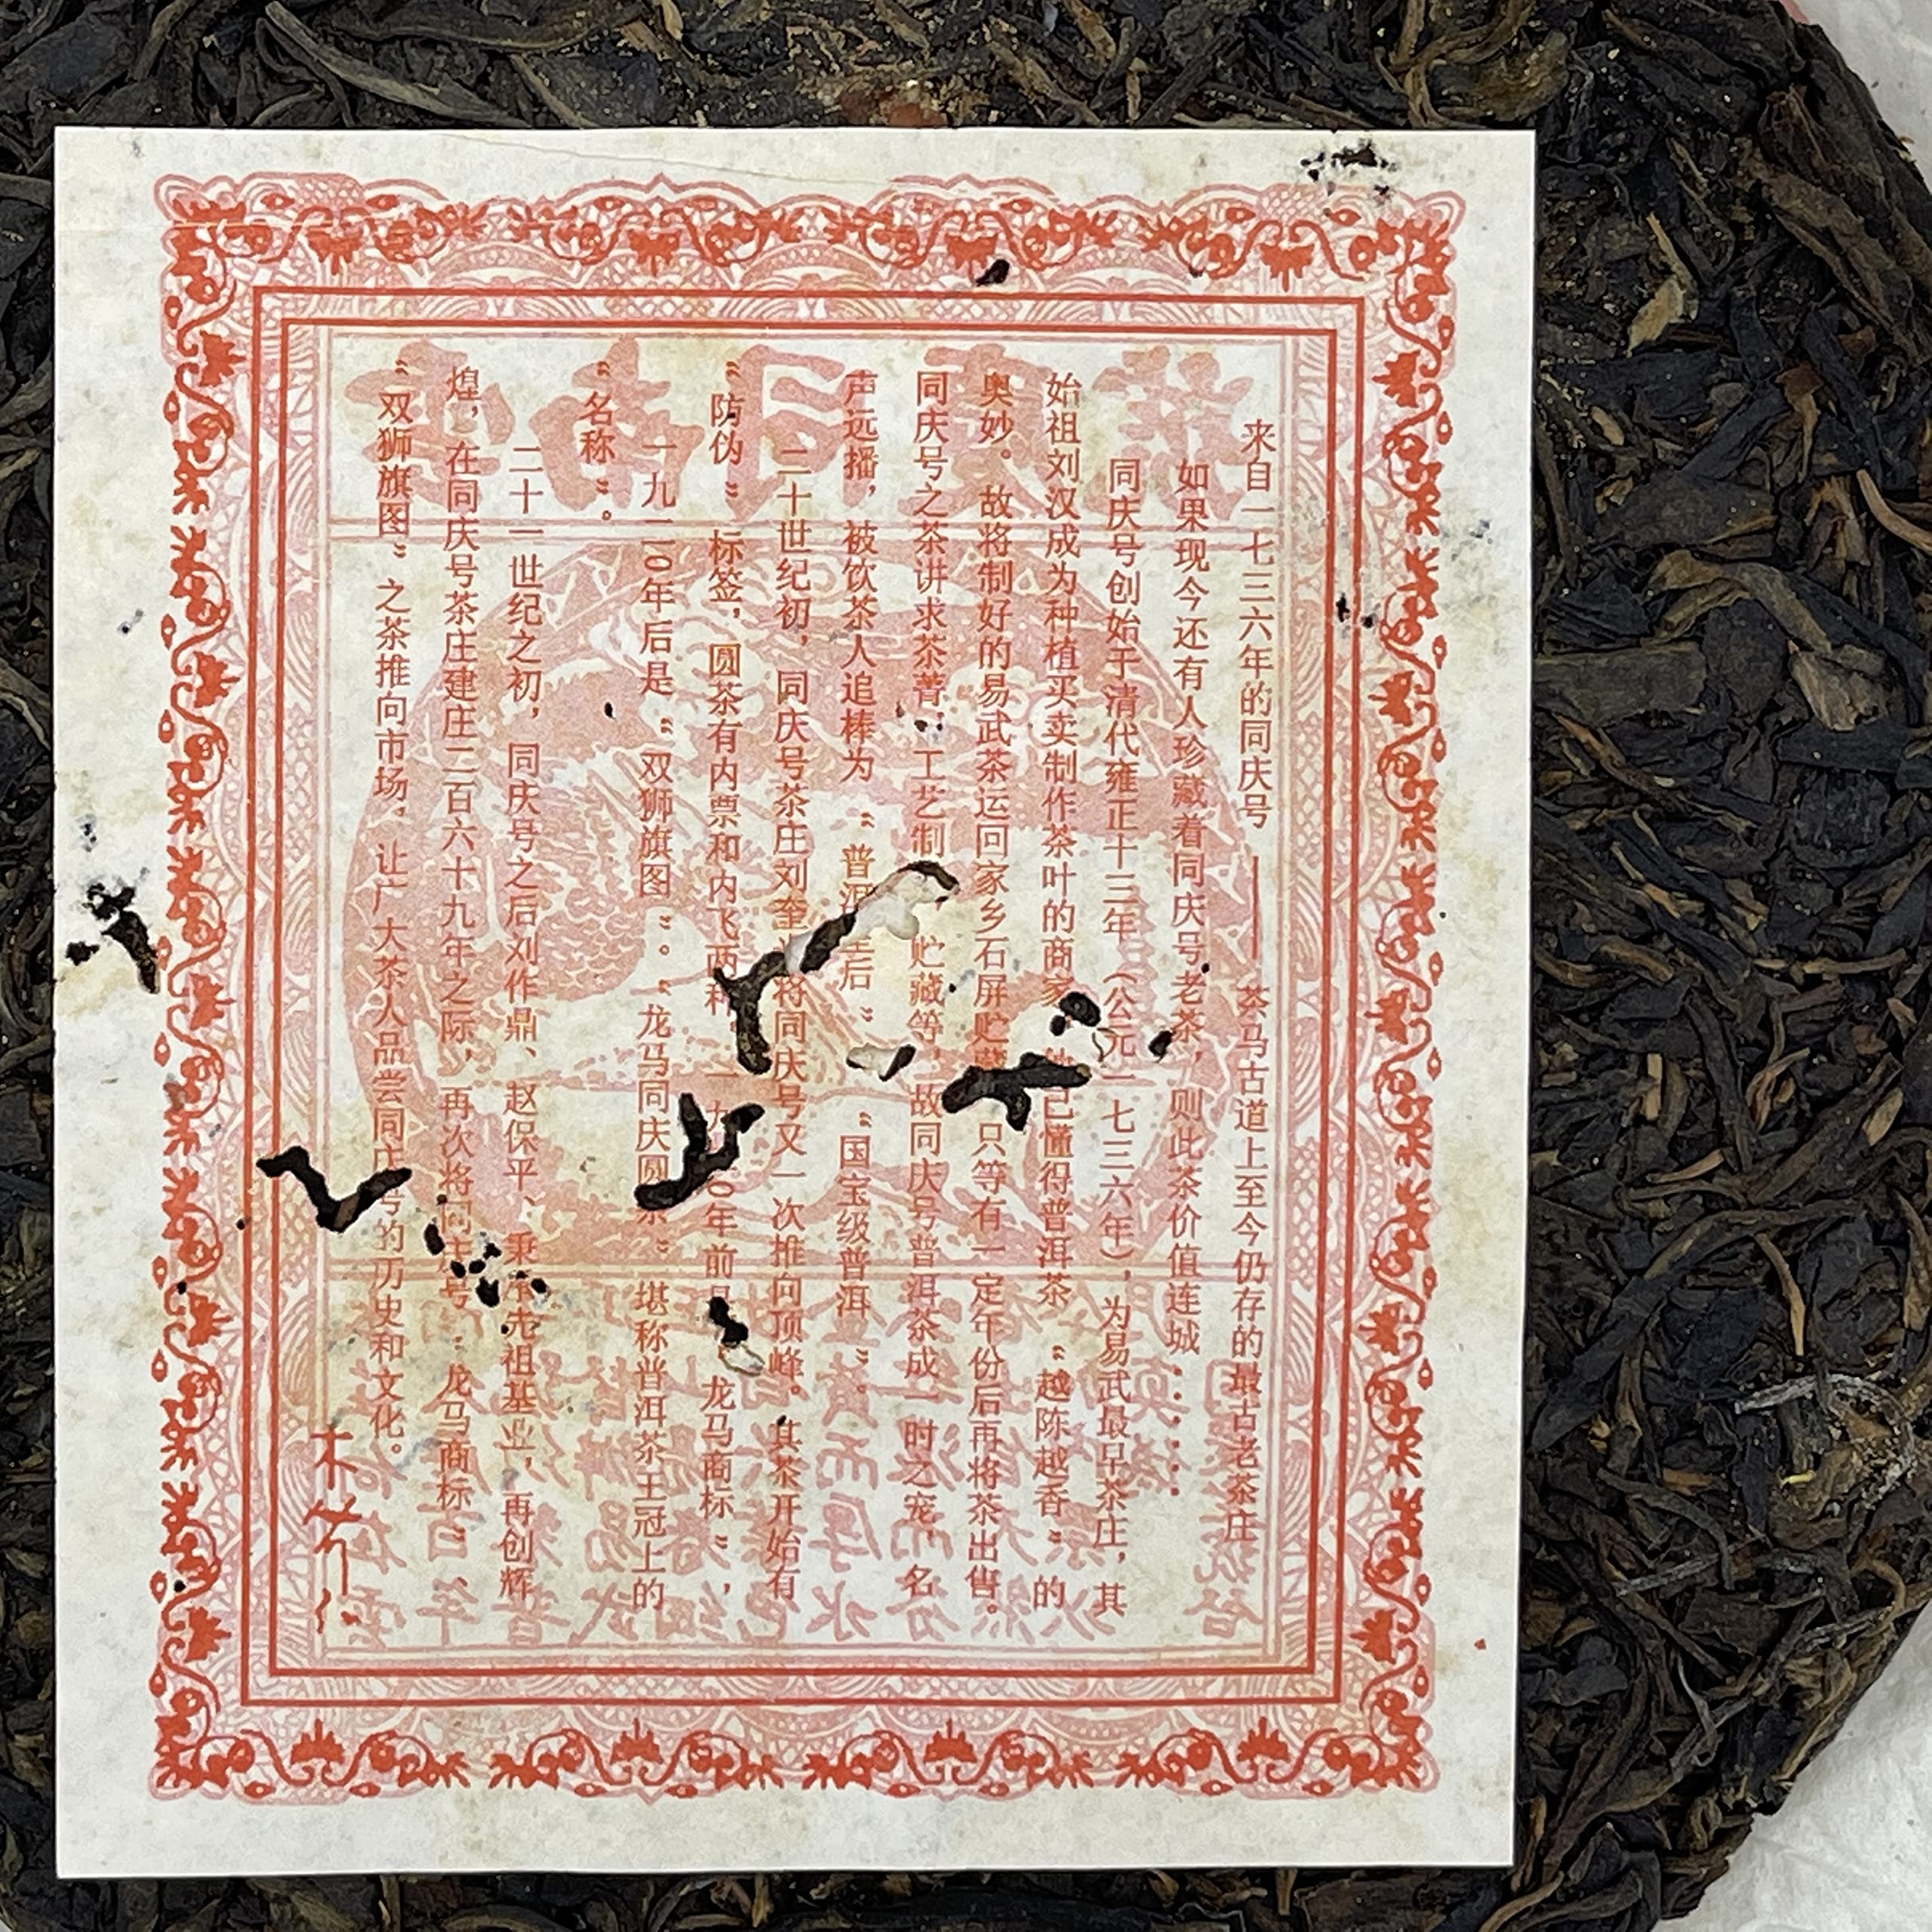 来自一七三六年的同庆号——茶马古道上至今仍存的最古老茶庄
如果现今还有人珍藏着同庆号老茶，则此茶价值连城……
同庆号创始于清代雍正十三年（公元一七三六年），为易武最早茶庄，其
始祖刘汉成为种植买卖制作茶叶的商家 已懂得普洱茶“越陈越香”的
奥妙。故将制好的易武茶运回家乡石屏贮藏 只等有一定年份后再将茶出售。
同庆号之茶讲求茶菁，工艺制 贮藏等，故同庆号普洱茶成一时之宠，名
声远播，被饮茶人追棒为“普洱 后”“国宝级普洱”。
二十世纪初，同庆号茶庄刘奎 将同庆号又一次推向顶峰。其茶开始有
“防伪”标签，圆茶有内票和内飞两种 一九 0年前 “龙马商标”，
一九二0年后是“双狮旗图”。“龙马同庆圆茶”堪称普洱茶王冠上的
“名称”。
二十一世纪之初，同庆号之后刘作鼎、赵保平、秉承先祖基业，再创辉
煌，在同庆号茶庄建庄二百六十九年之际，再次将同庆号“龙马商标”
“双狮旗图”之茶推向市场，让广大茶人品尝同庆号的历史和文化。